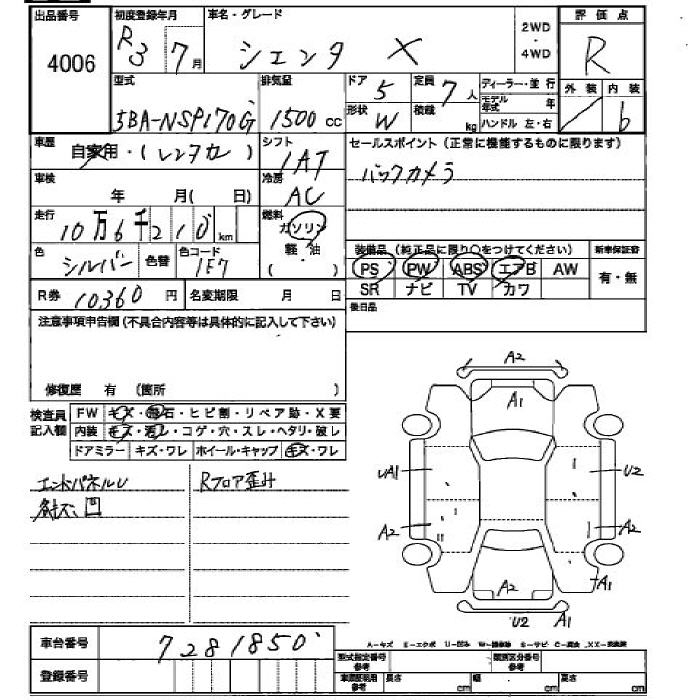 出品番号 初度登録年月 車名・グレード 2WD ・ 4WD 評価点
4006 R3 7月 シエンタ X R
型式 排気量 ドア 5 定員 7人 ディーラー・並行 外装 内装
5BA-NSP170G 1500 cc 形状 W 積載 kg モデル年式 年 ハンドル 左・右 b
車歴 自家用・(レンタカー) シフト 1AT セールスポイント (正常に機能するものに限ります)
車検 年 月( 日) 冷房 AC バックカメラ
走行 10万6千210km 燃料 ガソリン・軽油・( )
色 シルバー 色替 色コード 1E7
装備品 (純正品に限り○をつけてください) 新車保証書
PS PW ABS エアB AW 有・無
SR ナビ TV カワ
R券 10360円 名変期限 月 日 後日品
注意事項申告欄(不具合内容等は具体的に記入して下さい)
修復歴 有 (箇所 )
検査員記入欄 FW キズ・飛石・ヒビ割・リペア跡・X要
内装 キズ・汚レ・コゲ・穴・スレ・ヘタリ・破レ
ドアミラー キズ・ワレ ホイール・キャップ キズ・ワレ
エンドパネルU Rフロア歪み
各キズ、凹
A2
A1
UA1 U2
A2 A2
A2 A1
U2 A1
車台番号 7281850
登録番号
A-キズ E-エクボ U-凹み
型式指定番号 参考 類別区分番号 参考
参考 長さ cm 幅 cm 高さ cm